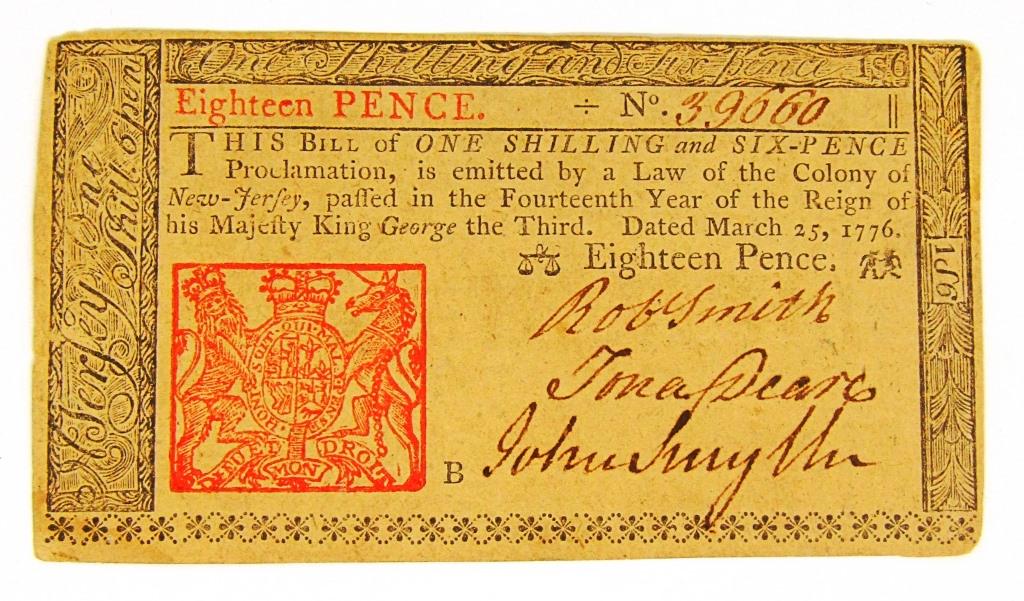 One Shilling and Six pence 1s6
N Jersey One Shill. 6 pen
Eighteen PENCE. ÷ No. 39660
THIS BILL of ONE SHILLING and SIX-PENCE
Proclamation, is emitted by a Law of the Colony of
New-Jerſey, paſſed in the Fourteenth Year of the Reign of
his Majeſty King George the Third. Dated March 25, 1776.
Eighteen Pence.
1ſ6
HONI SOIT QUI MAL Y PENSE
DIEU ET MON DROIT
Rob Smith
Jona Deare
B John Smyth